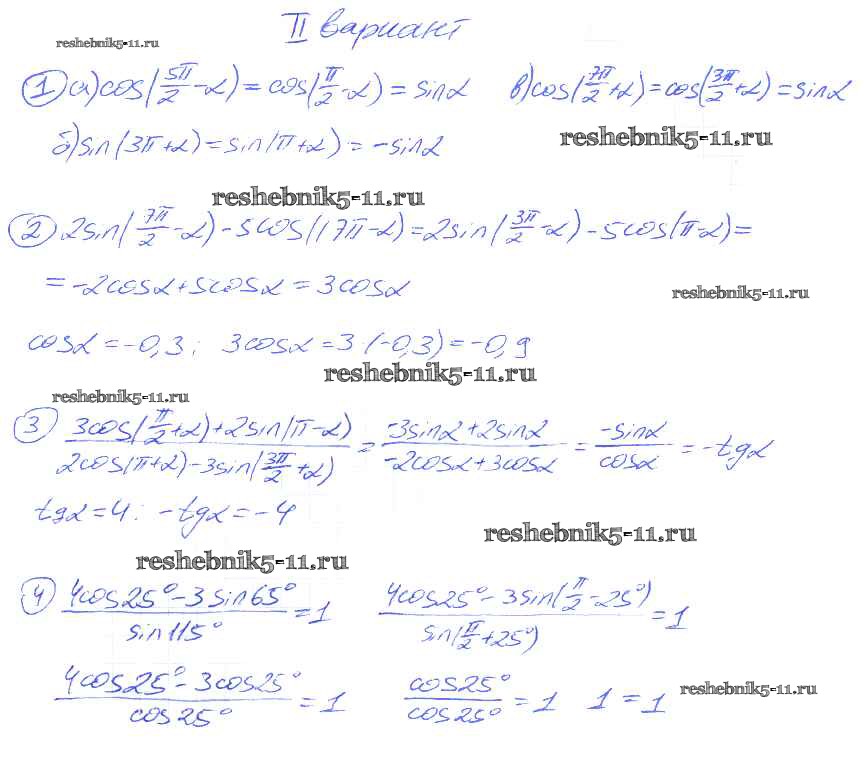 II вариант
reshebnik5-11.ru
① а) cos(5π/2 - α) = cos(π/2 - α) = sinα в) cos(7π/2 + α) = cos(3π/2 + α) = sinα
б) sin(3π + α) = sin(π + α) = -sinα
reshebnik5-11.ru
reshebnik5-11.ru
② 2sin(7π/2 - α) - 5cos(17π - α) = 2sin(3π/2 - α) - 5cos(π - α) =
= -2cosα + 5cosα = 3cosα
reshebnik5-11.ru
cosα = -0,3; 3cosα = 3·(-0,3) = -0,9
reshebnik5-11.ru
reshebnik5-11.ru
③ (3cos(π/2 + α) + 2sin(π - α))/(2cos(π + α) - 3sin(3π/2 + α)) = (-3sinα + 2sinα)/(-2cosα + 3cosα) = -sinα/cosα = -tgα
tgα = 4; -tgα = -4
reshebnik5-11.ru
reshebnik5-11.ru
④ (4cos25° - 3sin65°)/sin115° = 1 (4cos25° - 3sin(π/2 - 25°))/sin(π/2 + 25°) = 1
(4cos25° - 3cos25°)/cos25° = 1 cos25°/cos25° = 1 1 = 1
reshebnik5-11.ru